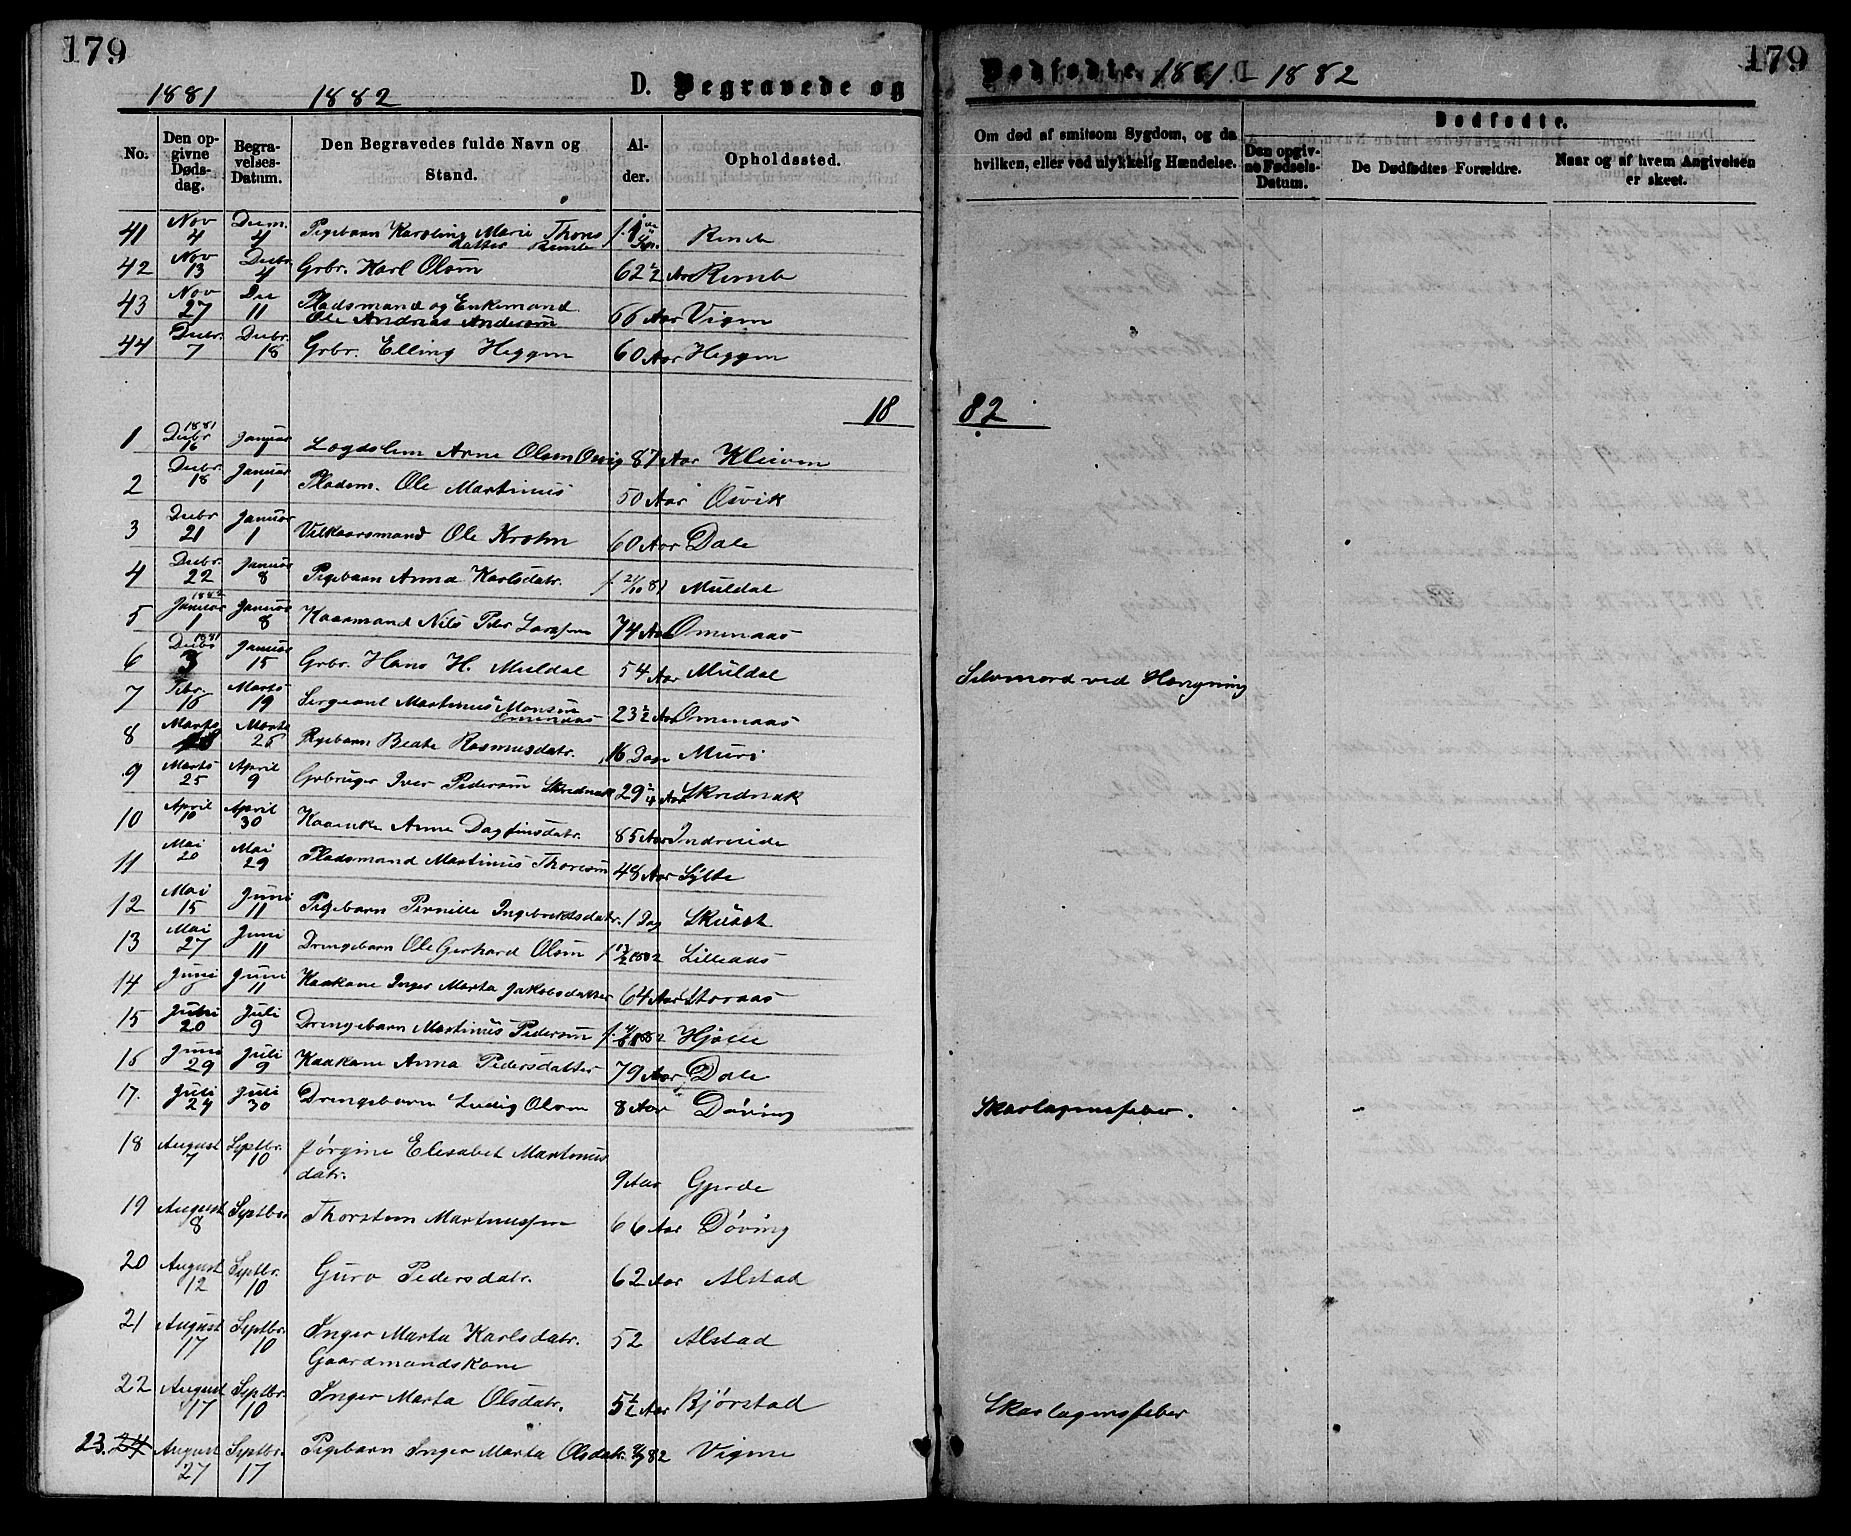 179
1881 1882 D. Begravede og
No. Den opgivne Dødsdag. Begravelses-Datum. Den Begravedes fulde Navn og Stand. Alder. Opholdssted.
41 Nov 4 Decm. 4 Pigebarn Karoline Marie Thonsdatter
42 Nov 13 Decbr. 4 Grbr. Karl Olsen 62 1/2 Aar
43 Nov 27 Dec 11 Pladsmand og Enkemand
Ole Andreas Andersen 66 Aar Vigen
44 Decbr. 7 Decbr. 18 Grbr. Elling Heggen 60 Aar Heggen
18
1 1881 Decbr 16 Januar 1 Lægdslem Arne Olsen 87 Aar Kleiven
2 Decbr. 18 Januar 1 Pladsm. Ole Martinus 50 Aar Osvik
3 Decbr 21 Januar 1 Vilkaarsmand Ole Krohn 60 Aar Dale
4 Decbr. 22 Januar 8 Pigebarn Anna Karlsdatr. f. 21/10 81 Muldal
5 1882 Januar 1 Januar 8 Kaarmand Nils Peder Larssen 74 Aar Omenaas
6 1881 Decbr 3 Januar 15 Grbr. Hans H. Muldal 54 Aar Muldal
7 Febr. 16 Marts 19 Sergeant Martinus Monsen
Omenaas 23 1/2 Aar Omenaas
8 Marts Marts 26 Pigebarn Beate Rasmusdatr. 16 Dage Muri
9 Marts 25 April 9 Grbruger Iver Pedersen Skrednak 29 Aar Skrednak
10 April 10 April 30 Kaarenke Anne Dagfinsdatr. 85 Aar Indreeide
11 Mai 20 Mai 29 Pladsmand Martinus Thoresen 48 Aar Sylte
12 Mai 15 Juni 11 Pigebarn Pernille Ingebrektsdatr. 1 Dag
13 Mai 27 Juni 11 Drengebarn Ole Gerhard Olsen f. 1882 Lilleaas
14 Juni Juni 11 Kaakone Inger Marta Jakobsdatter 64 Aar Storaas
15 Juni 20 Juli 9 Drengebarn Martinus Pedersen f. 1882 Hjelle
16 Juni 29 Juli 9 Kaakone Anna Pedersdatter 79 Aar Dale
17. Juli 24 Juli 30 Drengebarn Ludvig Olsen 8 Aar Døving
18 August 7 Septbr. 10 Jørgine Elesabet Martinus
datr. 9 Aar Gjerde
19 August 8 Septbr Thorsten Martinussen 66 Aar Døving
20 August 12 Septbr. 10 Guro Pedersdatr. 62 Aar Alstad
21 August 17 Septbr. 10 Inger Marta Karlsdatr. 52 Alstad
Gaardmandskone
22 August 17 Septbr. 10 Inger Marta Olsdatr. 5 1/2 Aar Bjørstad
23. 24 August 27 Septbr. 17 Pigebarn Inger Marta Olsdatr. 82 Vigne
179
Dødfødte. 1881 - 1882
Om død af smitsom Sygdom, og da hvilken, eller ved ulykkelig Hændelse.
Dødfødte.
Den opgivne Fødsels-Datum. De Dødfødtes Forældre. Naar og af hvem Angivelsen er skeet.
82
Selvmord ved Hængning
Skarlagensfeber.
Skarlagensfeber